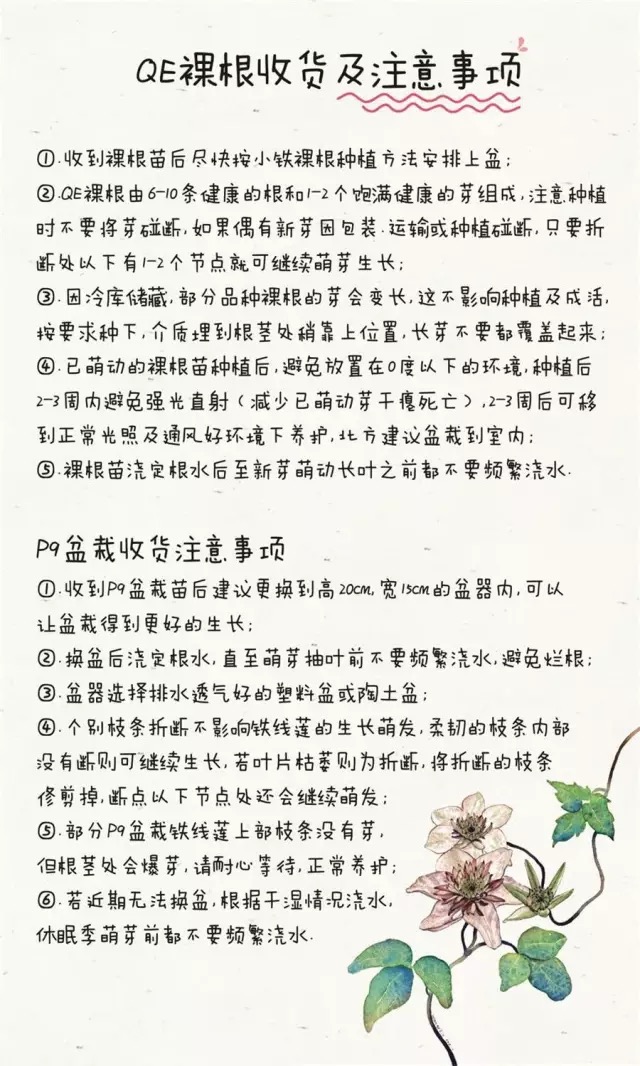 QE裸根收货及注意事项
①.收到裸根苗后尽快按小铁裸根种植方法安排上盆;
②.QE裸根由6-10条健康的根和1-2个饱满健康的芽组成,注意种植
时不要将芽碰断,如果偶有新芽因包装.运输或种植碰断,只要折
断处以下有1-2个节点就可继续萌芽生长;
③.因冷库储藏,部分品种裸根的芽会变长,这不影响种植及成活,
按要求种下,介质埋到根茎处稍靠上位置,长芽不要都覆盖起来;
④.已萌动的裸根苗种植后,避免放置在0度以下的环境,种植后
2-3周内避免强光直射(减少已萌动芽干瘪死亡),2-3周后可移
到正常光照及通风好环境下养护,北方建议盆栽到室内;
⑤.裸根苗浇定根水后至新芽萌动长叶之前都不要频繁浇水.
P9盆栽收货注意事项
①.收到P9盆栽苗后建议更换到高20cm,宽15cm的盆器内,可以
让盆栽得到更好的生长;
②.换盆后浇定根水,直至萌芽抽叶前不要频繁浇水,避免烂根;
③.盆器选择排水透气好的塑料盆或陶土盆;
④.个别枝条折断不影响铁线莲的生长萌发,柔韧的枝条内部
没有断则可继续生长,若叶片枯萎则为折断,将折断的枝条
修剪掉,断点以下节点处还会继续萌发;
⑤.部分P9盆栽铁线莲上部枝条没有芽,
但根茎处会爆芽,请耐心等待,正常养护;
⑥.若近期无法换盆,根据干湿情况浇水,
休眠季萌芽前都不要频繁浇水.